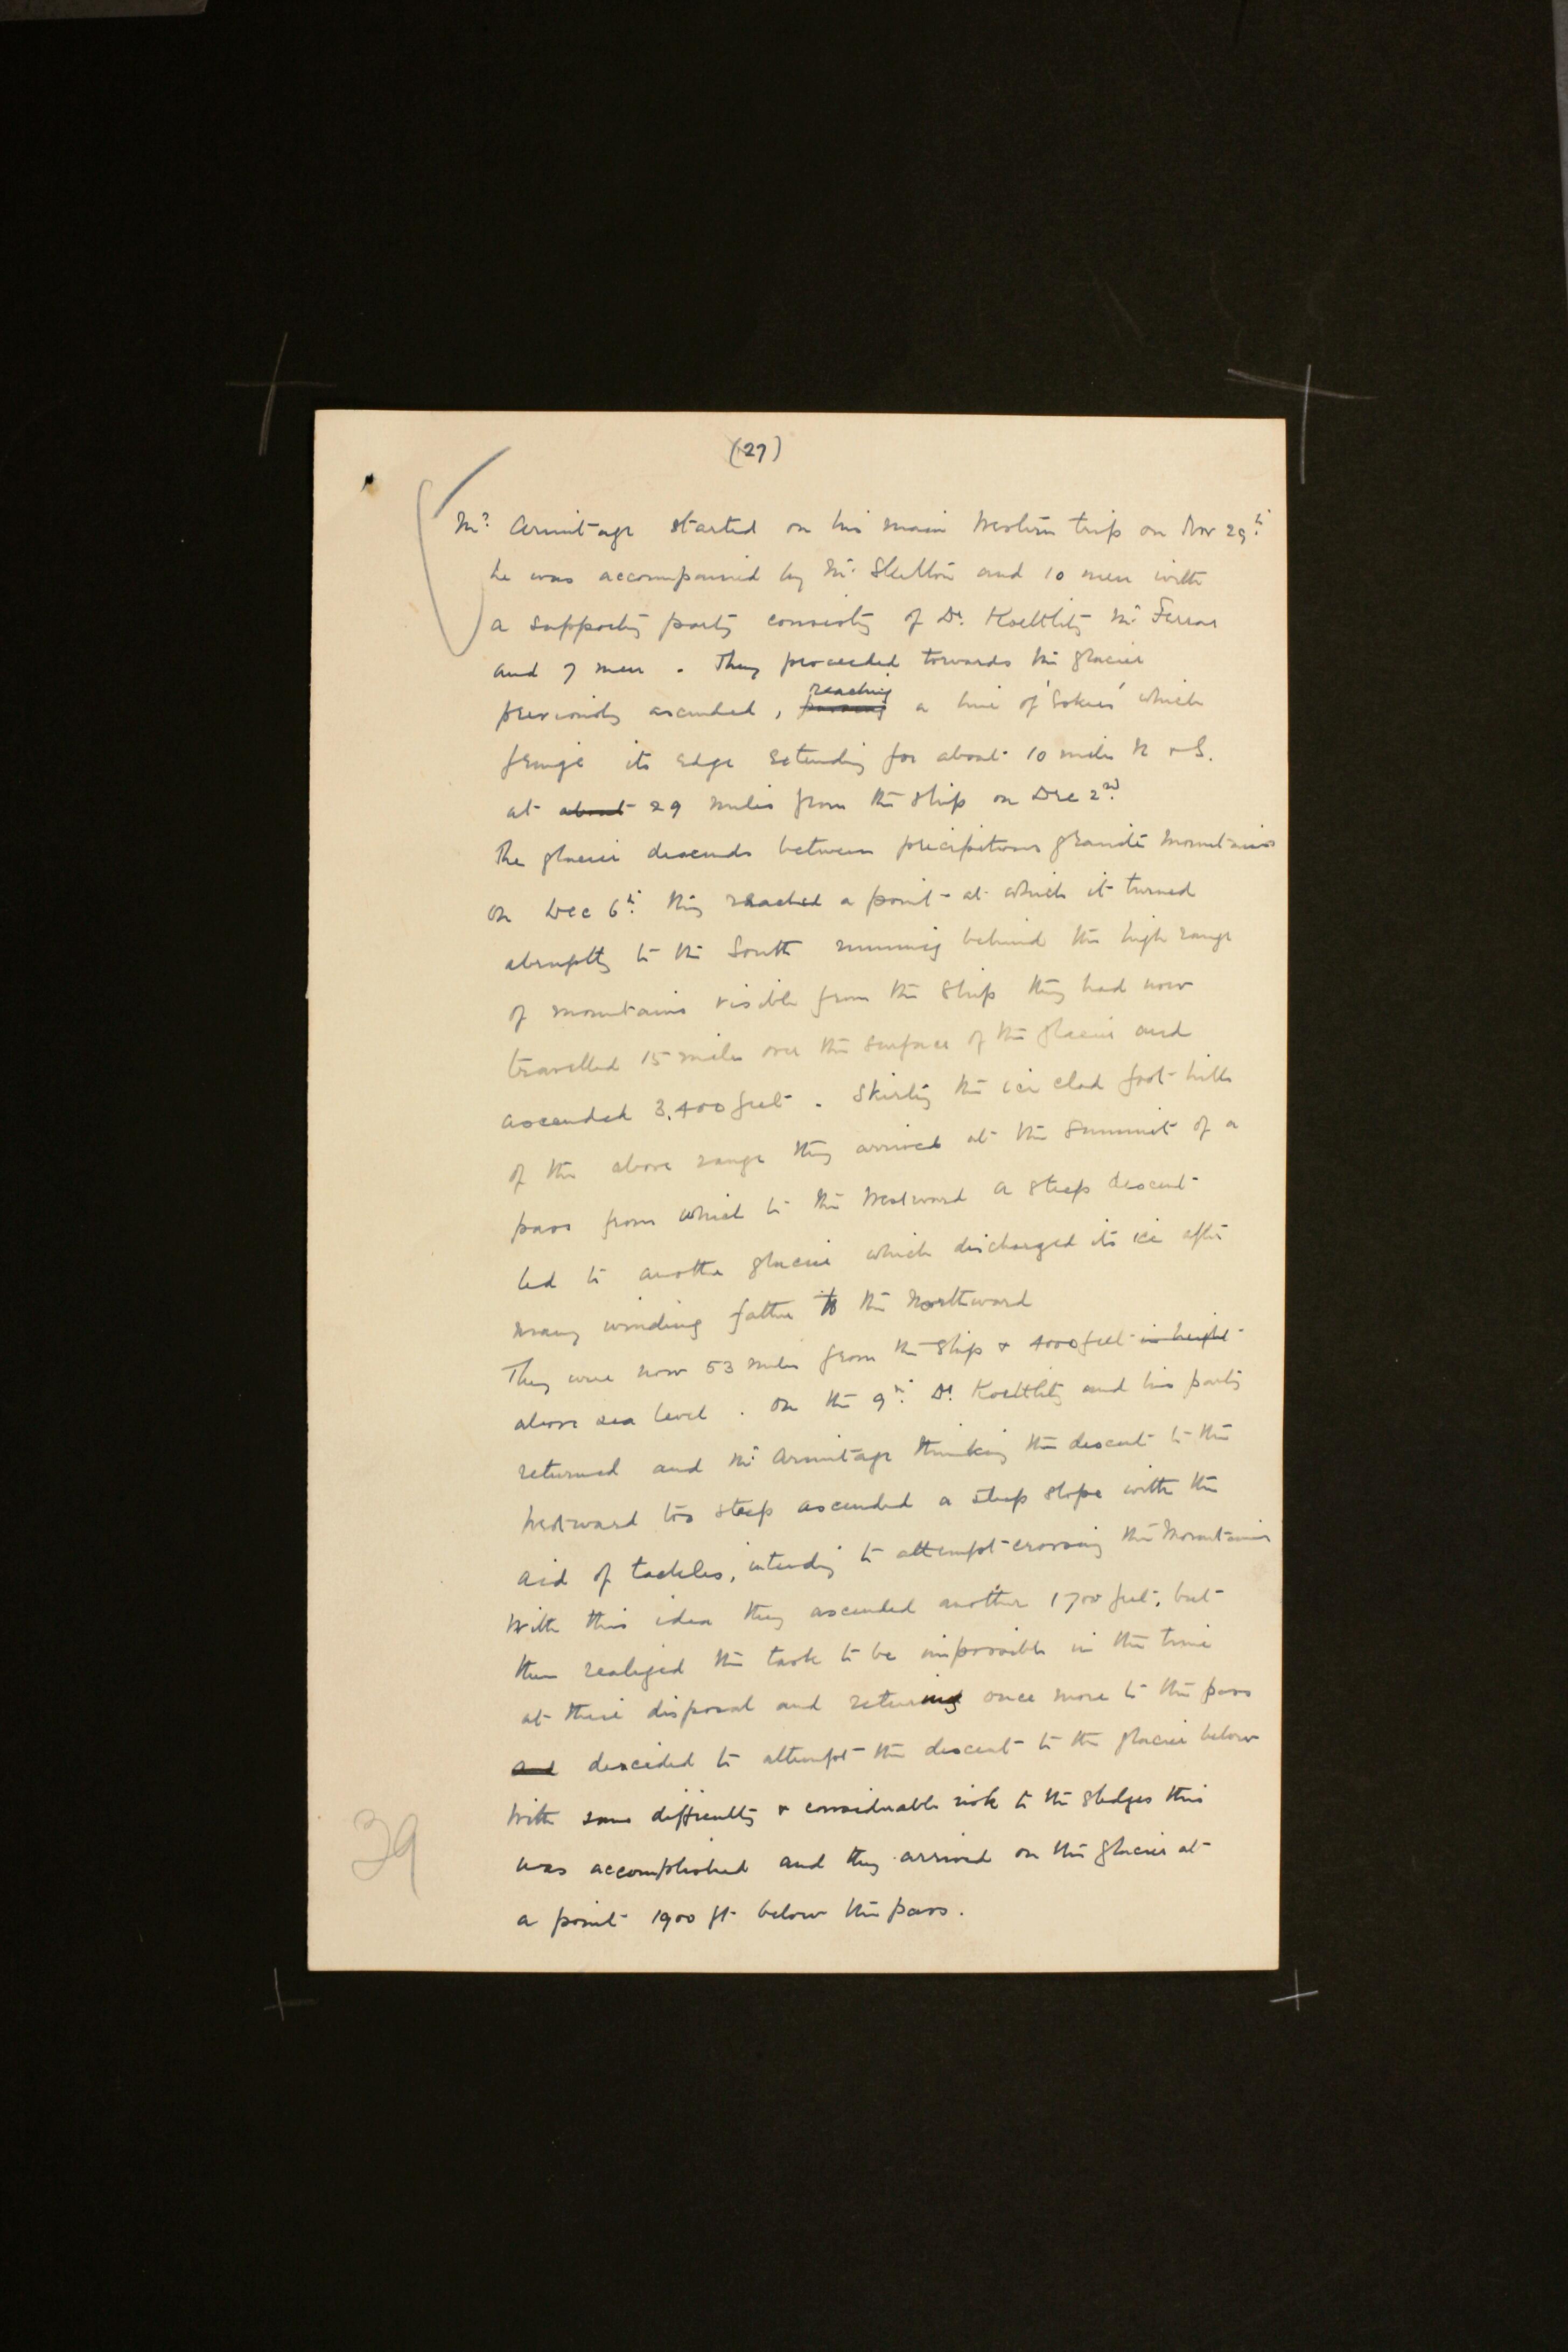 (27)
Mr. Armitage started on his main Western trip on Nov 29th.
he was accompanied by Mr. Skelton and 10 men with
a supporting party consisting of Dr. Koettlitz Mr Ferrar
and 7 men. They proceeded towards the glacier
reaching
previously ascended, a line of which
fringe its edge extending for about 10 miles N & S.
at about 29 miles from the ship on Dec 2nd.
The glacier descends between precipitous granite mountains
On Dec 6th. they reached a point at which it turned
abruptly to the South running behind the high range
of mountains visible from the Ship they had now
travelled 15 miles over the surface of the glacier and
ascended 3,400 feet. Skirting the ice clad foot hills
of the above range they arrived at the summit of a
pass from which to the Westward a steep descent
led to another glacier which discharged its ice after
many winding farther to the Northward
They were now 53 miles from the Ship & 4000 feet in height
above sea level. On the 9th. Dr. Koettlitz and his party
returned and Mr Armitage thinking the descent to the
Westward too steep ascended a steep slope with the
aid of tackles, intending to attempt crossing the Mountains
With this idea they ascended another 1700 feet, but
then realized the task to be impossible in the time
at their disposal and returning once more to the pass
and descided to attempt the descent to the glacier below
With some difficulty & considerable risk to the sledges this
was accomplished and they arrived on the glacier at
a point 1900 ft below the pass.
39